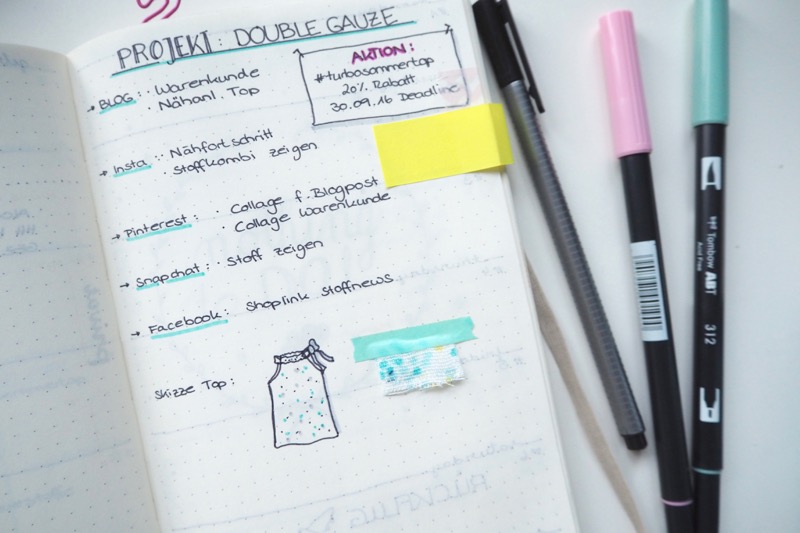 PROJEKT: DOUBLE GAUZE
AKTION:
#turbosommertop
20% Rabatt
30.09.16 Deadline
→ BLOG: · Warenkunde
· Nähanl. Top
→ Insta: · Nähfortschritt
· Stoffkombi zeigen
→ Pinterest: · Collage f. Blogpost
· Collage Warenkunde
→ Snapchat: · Stoff zeigen
→ Facebook: Shoplink Stoffnews
Skizze Top:
Tombow ABT
Acid Free
312